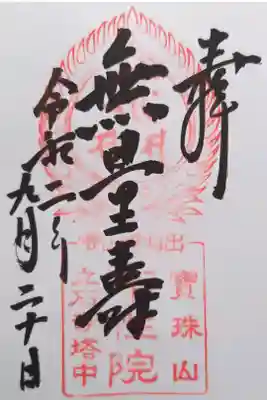 奉拝
無量寿
令和二年
九月二十日
寶珠山
院
塔中